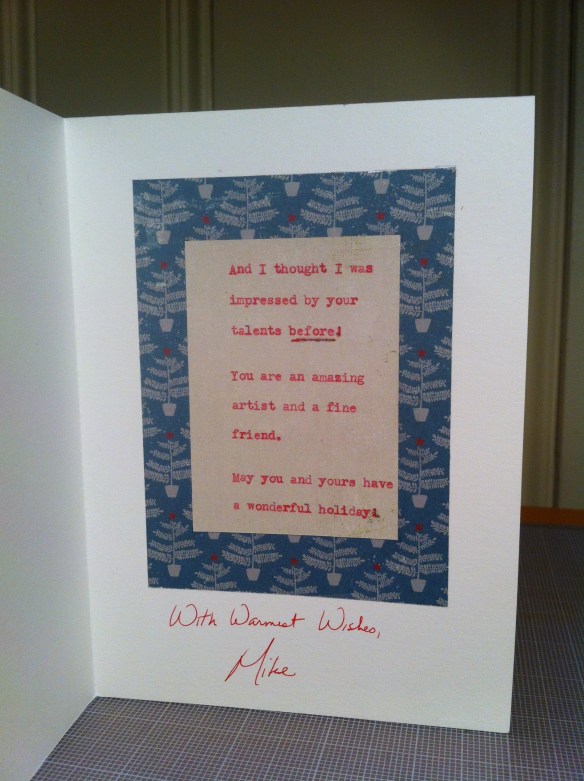 And I thought I was
impressed by your
talents before!
You are an amazing
artist and a fine
friend.
May you and yours have
a wonderful holiday!
With Warmest Wishes,
Mike